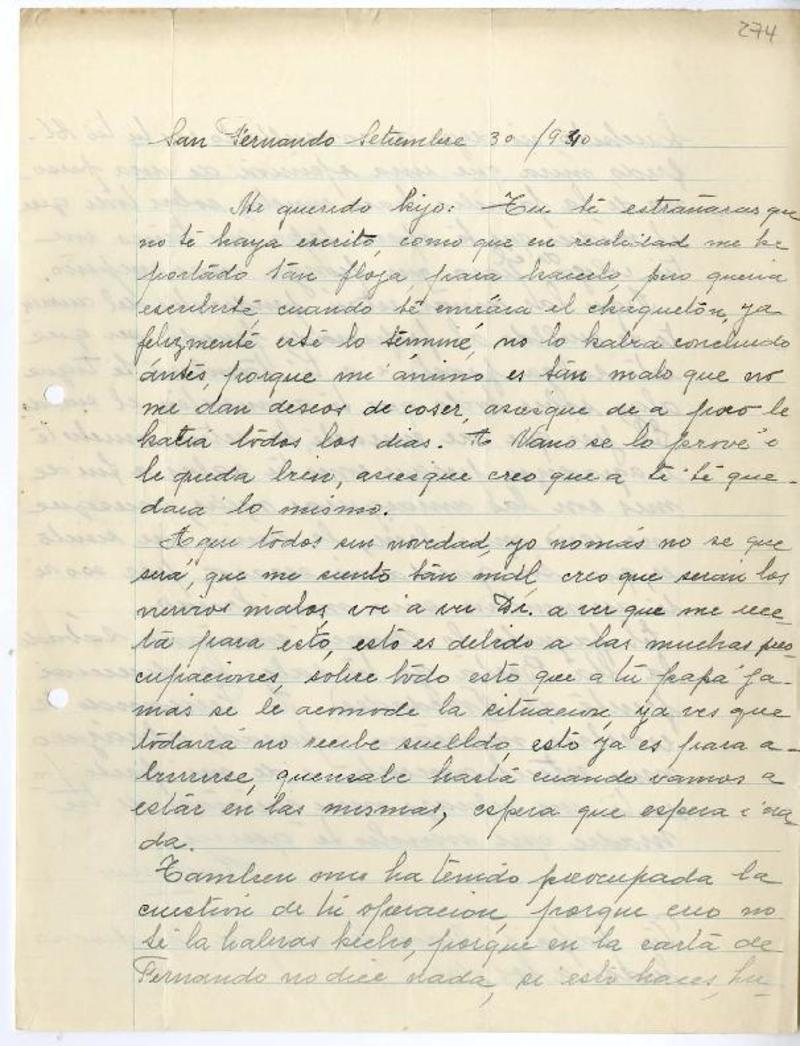 274
San Fernando Setiembre 30 /930
Mi querido hijo: Tu té estrañaras que
no té haya escrito, como que en realidad me he
portado tán floja, para hacerlo, pero queria
escribirté, cuando té enviára el chaquetón, ya
felizmenté esté lo términé, no lo habia concluido
ántés, porque mi ánimo es tán malo que no
me dan deseos de coser, asiesque de a poco le
hacia tódos los dias. A Nano se lo prové i
le queda bien, asiesque creo que a té té que-
dara lo mismo.
Aqui tódos sin novedad, yo nomás no se que
será, que me siento tán mál, creo que serán los
nervios malos, voi a ver Dr. a ver que me rece
tá para esto, esto es debido a las muchas preo
cupaciones, sobre tódo esto que a tú papá ja-
más se lé acomode la situacion, ya ves que
tódaviá no recibe suelldo, esto ya es para a-
burrirse, quensabe hastá cuando vamos a
estár en las mesmas, espera que espera i na
da.
Tambien me ha tenido preocupada la
cuestión de tú operacion, porque creo no
té la habras hecho, porque en la cartá de
Fernando no dice nada, si esto haces, hu-